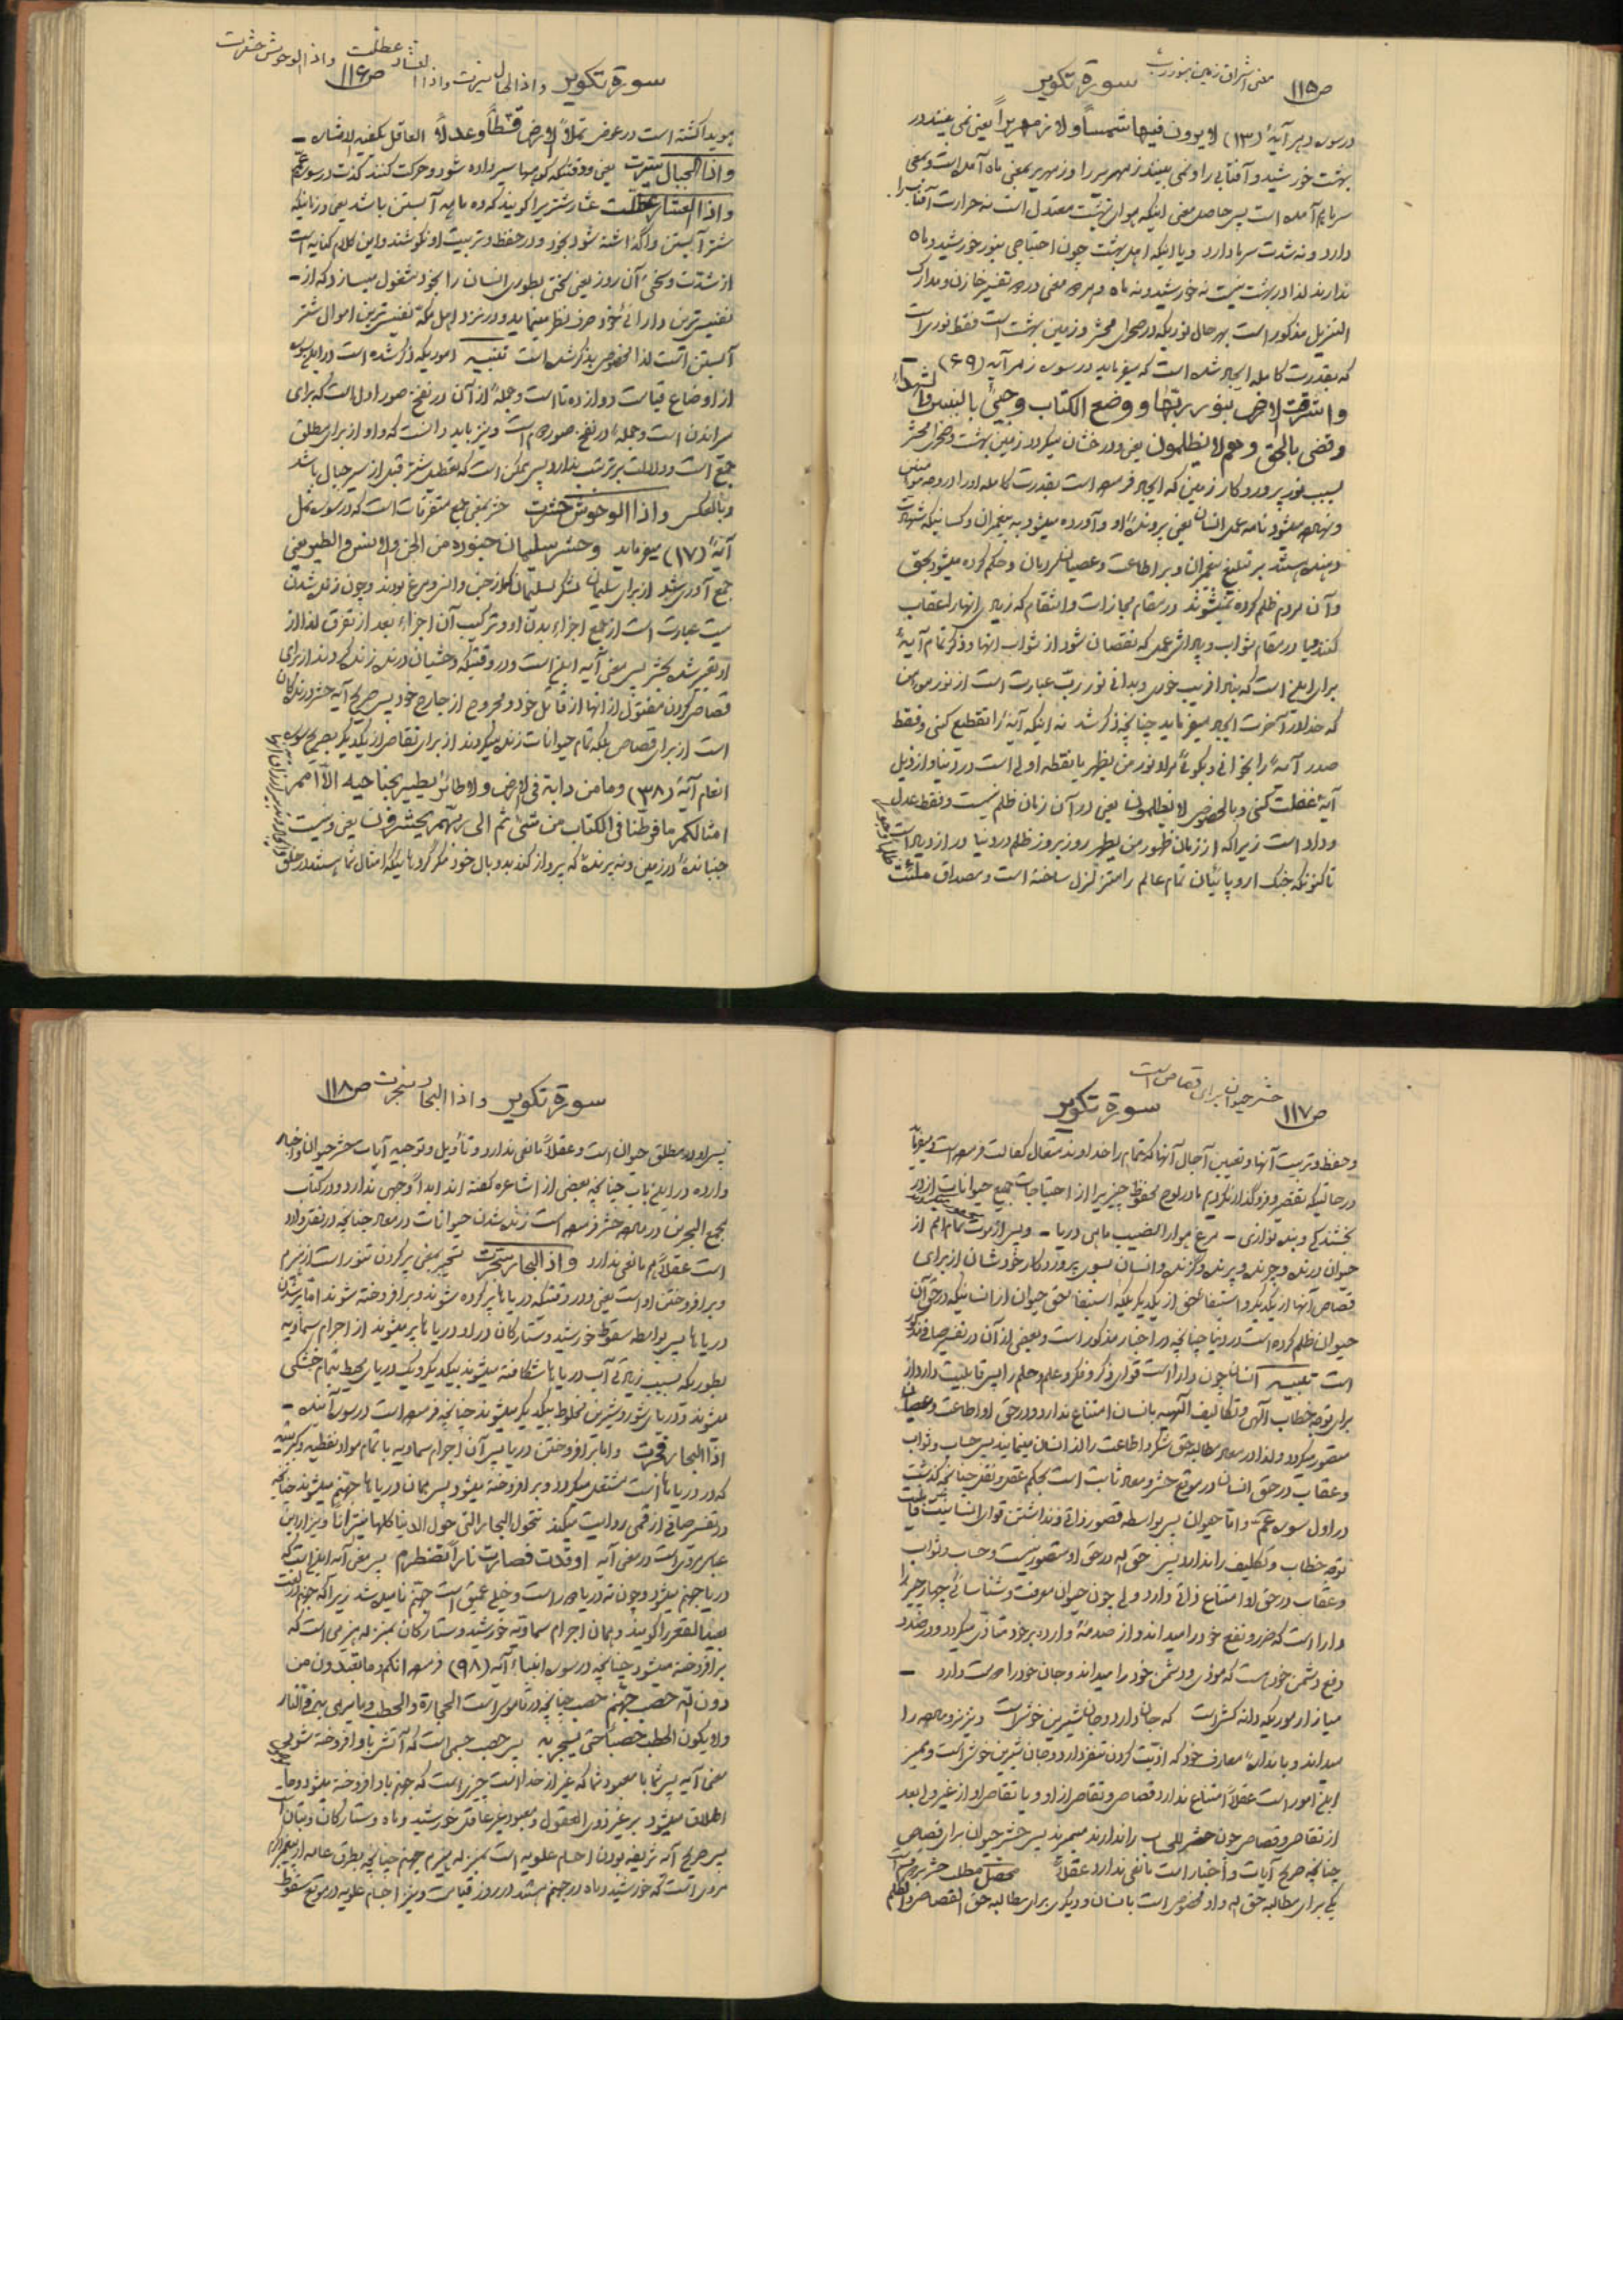 ص۱۱۵ سورة تكوير معنی اشراق زمین بنور رب
در سوره دهر آیهٔ (۱۳) لا یرون فیها شمساً ولا زمهریراً یعنی نمی بینند در
بهشت خورشید و آفتابی را و نمی بینند زمهریر را و زمهریر بمعنی ماه آمده است و بمعنی
سرما هم آمده است پس حاصل معنی اینکه هوای بهشت معتدل است نه حرارت آفتاب را
دارد و نه شدت سرما دارد و یا اینکه اهل بهشت چون احتیاجی بنور خورشید و ماه
ندارند لذا در بهشت نیست نه خورشید و نه ماه و هر دو معنی در تفسیر خازن و مدارک
التنزیل مذکور است بهر حال نوریکه در صحرای محشر و زمین بهشت است فقط نوری است
که بقدرت کامله ایجاد شده است که میفرماید در سوره زمر آیه (۶۹) –
واشرقت الارض بنور ربّها ووضع الکتاب وجیئ بالنبیین والشهداء
وقضی بالحق وهم لا یظلمون یعنی و درخشان میگردد زمین بهشت و صحرای محشر
بسبب نور پروردگار زمین که ایجاد فرموده است بقدرت کامله او را در
و نهاده میشود نامه عمل انسان یعنی پرونده او و آورده میشود پیغمبران و کسانیکه شهادت
دهنده هستند بر تبلیغ پیغمبران و بر اطاعت و عصیان و حکم کرده میشود بحق
و آن مردم ظلم کرده نمیشوند در مقام مجازات و انتقام که زیاد بر آنها عقاب
کنند و یا در مقام ثواب و پاداش عمل که نقصان شود از ثواب آنها و ذکر تمام آیهٔ
برای این است که فریب نخوری و بدانی نور رب عبارت است از نور
که خدا در آخرت ایجاد میفرماید چنانچه ذکر شد نه اینکه آیهٔ را تقطیع کنی و فقط
صدر آیه را بخوانی و بگوئی مراد نور من یظهر یا نقطه اولی است در دنیا و از ذیل
آیهٔ غفلت کنی و بالخصوص لا یظلمون یعنی در آن زمان ظلم نیست و فقط عدل
و داد است زیرا که از زمان ظهور من یظهر روز بروز ظلم در دنیا در ازدیاد است
تا کنون که جنگ اروپائیان تمام عالم را متزلزل ساخته است و مصداق ملئت
ظلماً وجوراً
ص۱۱۶ سورة تكوير واذا الجبال سیرت واذا العشار عطّلت واذا الوحوش حشرت
هویدا گشته است در عوض تملأ الارض قسطاً وعدلاً العاقل یکفیه الاشاره –
واذا الجبال سیّرت یعنی و وقتیکه کوهها سیر داده شود و حرکت کنند گذشت در سوره عمّ
واذا العشار عطّلت عشار شتریرا گویند که ده ماهه آبستن باشد یعنی و زمانیکه
شتر آبستن واگذاشته شود بخود و در حفظ و تربیت او نکوشند و این کلام کنایه است
از شدّت و سختی آن روز یعنی سختی بطوری انسان را بخود مشغول میسازد که از –
نفیس ترین دارائی خود صرف نظر مینماید و در نزد اهل مکّه نفیس ترین اموال شتر
آبستن است لذا بخصوص بذکر شده است تنبیه اموریکه ذکر شده است در این سوره
از اوضاع قیامت دوازده تا است و جمله از آن در نفخ صور اول است که برای
میراندن است و جمله در نفخ صور دوم است و نیز باید دانست که واو از برای مطلق
جمع است و دلالت بر ترتیب ندارد پس ممکن است که تعطیل شتر قبل از سیر جبال باشد
و بالعکس واذا الوحوش حشرت حشر بمعنی جمع متفرقات است که در سوره نمل
آیهٔ (۱۷) میفرماید وحشر سلیمان جنوده من الجن والانس والطیر یعنی
جمع آوری شد از برای سلیمان لشکر سلیمان از جن و انس و مرغ بودند و چون زنده شدن
میت عبارت است از جمع اجزاء بدن او و ترکیب آن اجزاء بعد از تفرق لذا از
او تعبیر شده بحشر پس معنی آیه این است و در وقتیکه وحشیان درنده زنده گردند از برای
قصاص کردن مقتول از آنها از قاتل خود و مجروح از جارح خود پس صریح آیه حشر درندگان
است از برای قصاص بلکه تمام حیوانات زنده میگردند از برای تقاص از یکدیگر بصریح سوره
انعام آیهٔ (۳۸) وما من دابة فی الارض ولا طائر یطیر بجناحیه الّا امم
امثالکم ما فرّطنا فی الکتاب من شئ ثم الی ربّهم یحشرون یعنی و نیست
جنبانندهٔ در زمین و نه پرندهٔ که پرواز کند بدو بال خود مگر گروهائیکه امثال شما هستند در خلق
ص۱۱۷ سورة تكوير حشر حیوان برای قصاص است
و حفظ و تربیت آنها و تعیین آجال آنها که تمام را خداوند متعال کفالت فرموده است
در حالتیکه تقصیر و فروگذار نکردیم ما در لوح محفوظ چیزیرا از احتیاجات جمیع حیوانات
بخشندگی و بنده نوازی – مرغ هوا را نصیب ماهی دریا – و پس از موت تمام امم از
حیوان درنده و چرنده و پرنده و گزنده و انسان بسوی پروردگار خودشان از برای
قصاص آنها از یکدیگر و استیفاء حق از یکدیگر بلکه استیفاء حق حیوان از انسانیکه در حق آن
حیوان ظلم کرده است در دنیا چنانچه در اخبار مذکور است و بعضی از آن در تفسیر صافی مذکور
است تنبیه انسان چون دارا است قوای ذکر و فکر و علم و حلم را پس قابلیت دارد از
برای توجه خطاب الهی و تکالیف الهیه بانسان امتناع ندارد و در حق او اطاعت و عصیان
متصور میگردد ولذا در معاد مطالبه حق شکر و اطاعت را از انسان مینمایند پس حساب و ثواب
و عقاب در حق انسان در موقع حشر و معاد ثابت است بحکم عقل و نقل چنانچه گذشت
در اول سوره عمّ و امّا حیوان پس بواسطه قصور ذاتی و نداشتن قوای انسانیت قابلیت
توجه خطاب و تکلیف را ندارد پس حق اله در حق او متصور نیست و حساب و ثواب
و عقاب در حق او امتناع ذاتی دارد ولی چون حیوان معرفت و شناسائی چهار چیز را
دارا است که ضرر و نفع خود را میداند و از صدمهٔ وارده بر خود متأذی میگردد و در صدد
دفع دشمن خود است که موذی و دشمن خود را میداند و جان خود را دوست دارد –
میازار موریکه دانه کش است که جان دارد و جان شیرین خوش است و نیز نر و ماده را
میداند و باندازهٔ معارف خود که اذیّت کردن تنفر دارد و جان شیرین خوش است و ممیز
این امور است عقلاً امتناع ندارد قصاص و تقاص از او و یا تقاص او از غیر و بعد
از تقاص و قصاص چون حشر للحساب را ندارند میمیرند پس حشر حیوان برای قصاص
چنانچه صریح آیات و اخبار است مانعی ندارد عقلاً محصل مطلب حشر بر دو قسم است
یکی برای مطالبه حق اله و او مخصوص است بانسان و دیگری برای مطالبه حق القصاص و الظلم
ص۱۱۸ سورة تكوير واذا البحار سجرت
پس او در مطلق حیوان است و عقلاً مانعی ندارد و تأویل و توجیه آیات حشر حیوان و اخبار
وارده در این باب چنانچه بعضی از اشاعره گفته اند ابداً وجهی ندارد و در کتاب
مجمع البحرین در ماده حشر فرموده است زنده شدن حیوانات در معاد چنانچه در نقل وارد
است عقلاً هم مانعی ندارد واذا البحار سجّرت تسجیر بمعنی پر کردن تنور است از هیزم
و برافروختن او است یعنی و در وقتیکه دریاها پر کرده شوند و برافروخته شوند امّا پر شدن
دریاها پس بواسطه سقوط خورشید و ستارگان در او دریاها پر میشوند از اجرام سماویه
بطوریکه بسبب زیادتی آب دریاها شکافته میشوند بیکدیگر و یک دریای محیط بتمام خشکی
میشوند و دریای شور و شیرین مخلوط بیکدیگر میشوند چنانچه فرموده است در سوره آینده –
اذا البحار فجّرت و اما برافروختن دریا پس آن اجرام سماویه با تمام مواد نفطیه و کبریتیه
که در دریاها است مشتعل میگردد و برافروخته میشود پس همان دریاها جهنّم میشوند چنانچه
در تفسیر صافی از قمی روایت میکند تتحول البحار التی حول الدنیا کلها نیراناً و نیز از ابن
عباس مروی است در معنی آیه اوقدت فصارت ناراً تضطرم پس معنی آیه این است که
دریا جهنم میشود و چون ته دریا دور است و خیلی عمیق است جهنّم نامیده شد زیرا که جهنم در لغت
بعید القعر را گویند و همان اجرام سماویه خورشید و ستارگان بمنزله هیزمی است که
برافروخته میشود چنانچه در سوره انبیاء آیه (۹۸) فرموده انکم وما تعبدون من
دون اللّه حصب جهنّم حصب چنانچه در قاموس است الحجارة والحطب وما یرمی به فی النار
ولا یکون الحطب حصباً حتی یسجر به پس حصب جسمی است که آتش باو افروخته شود پس
معنی آیه پس شما با معبود شما که غیر از خدا است چیزی است که جهنم باو افروخته میشود و ما –
اطلاق میشود بر غیر ذوی العقول و معبود غیر عاقل خورشید و ماه و ستارگان و بتان است
پس صریح آیه شریفه بودن اجسام علویه است بمنزله هیزم جهنم چنانچه بطرق عامه از پیغمبر اکرم
مروی است که خورشید و ماه در جهنم هستند در روز قیامت و نیز اجسام علویه در موقع سقوط